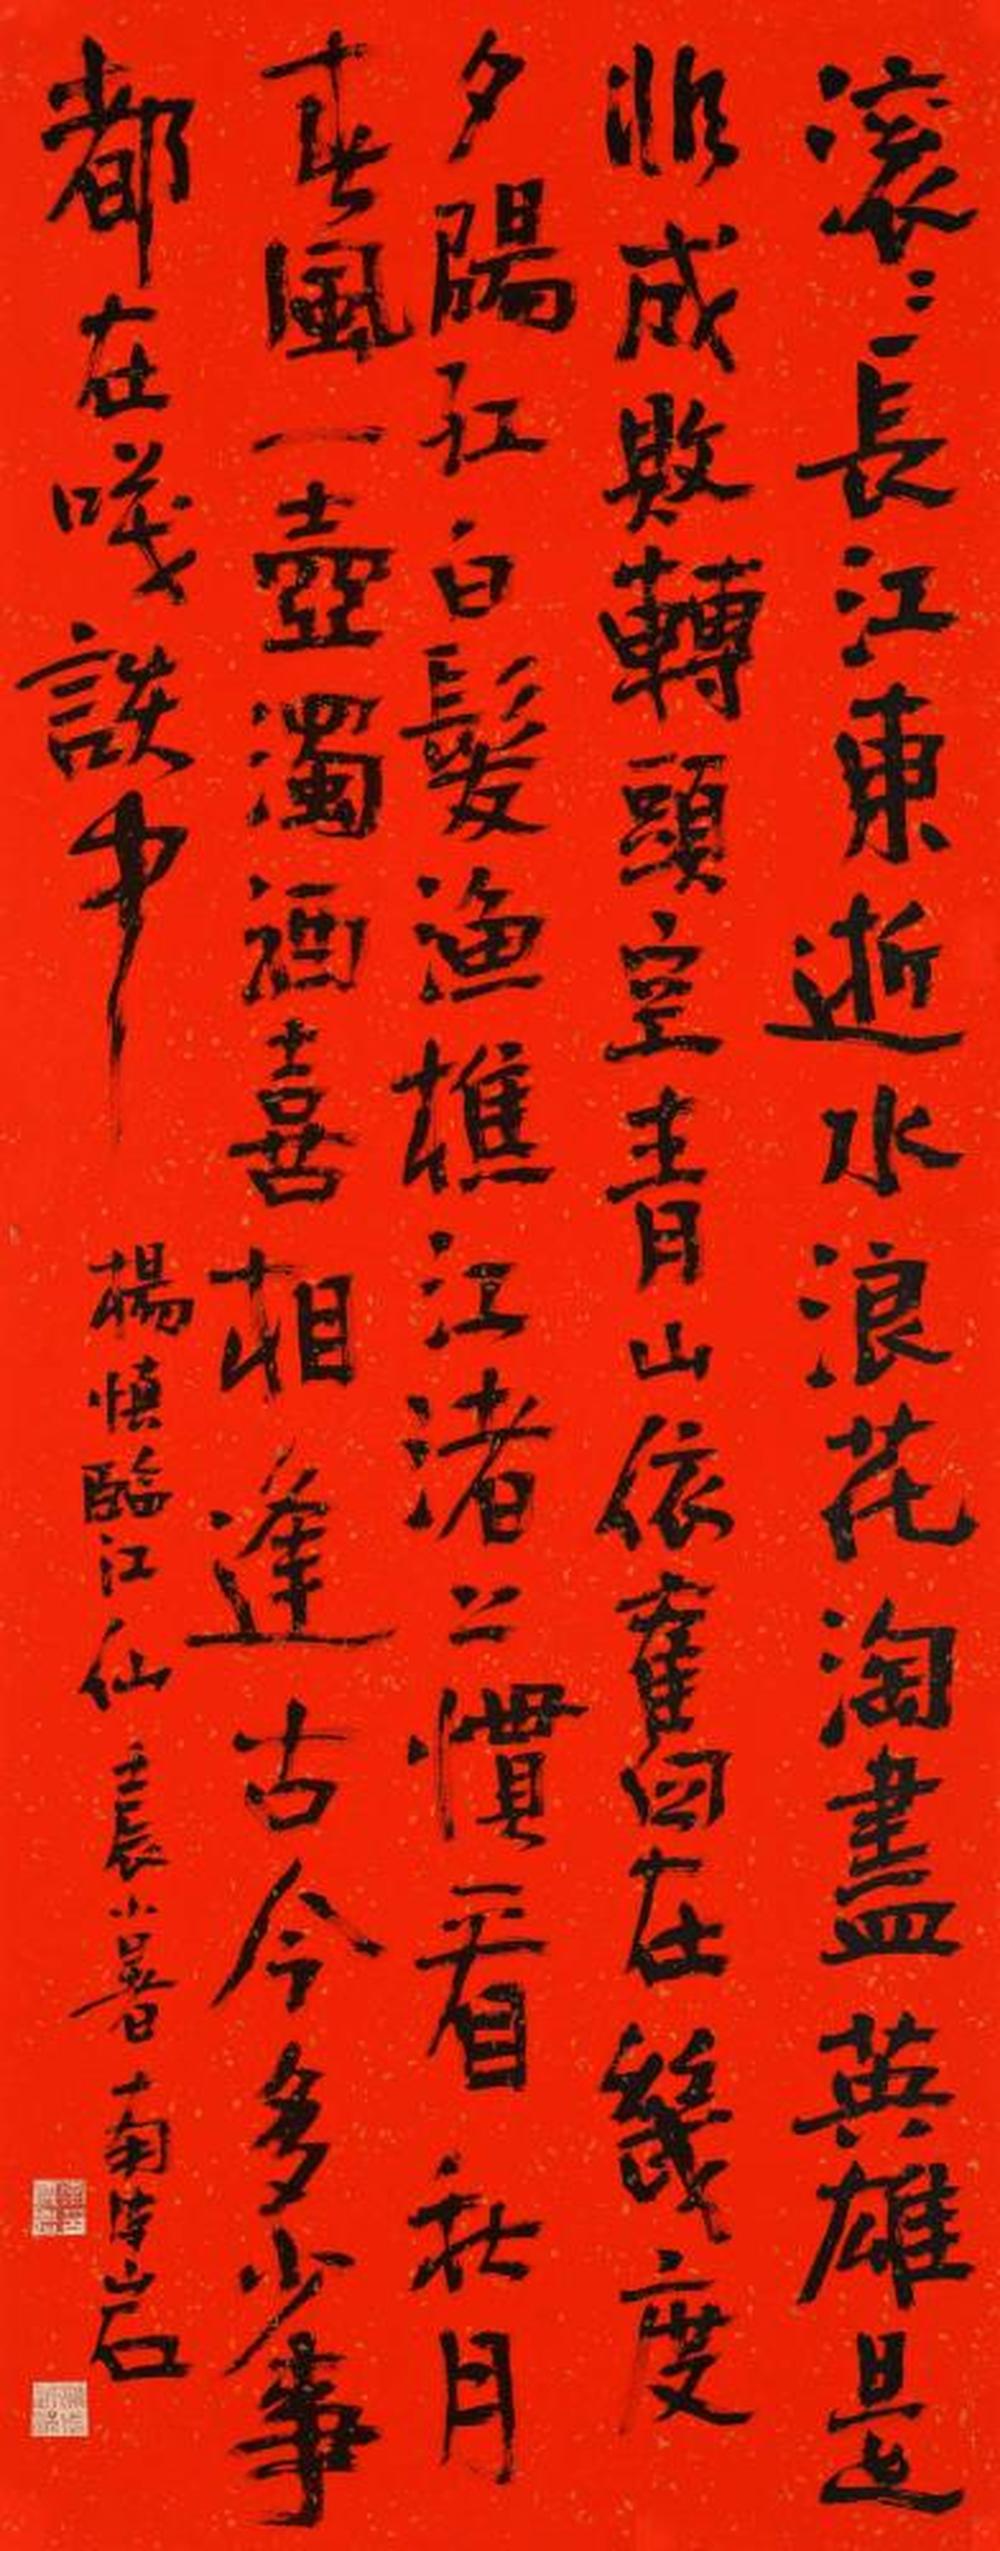 滚〻長江東逝水浪花淘盡英雄是
非成敗轉頭空青山依舊在幾度
夕陽紅白髮渔樵江渚上慣看秋月
春風一壺濁酒喜相逢古今多少事
都在咲談中 楊慎臨江仙 壬辰小暑 南 岩